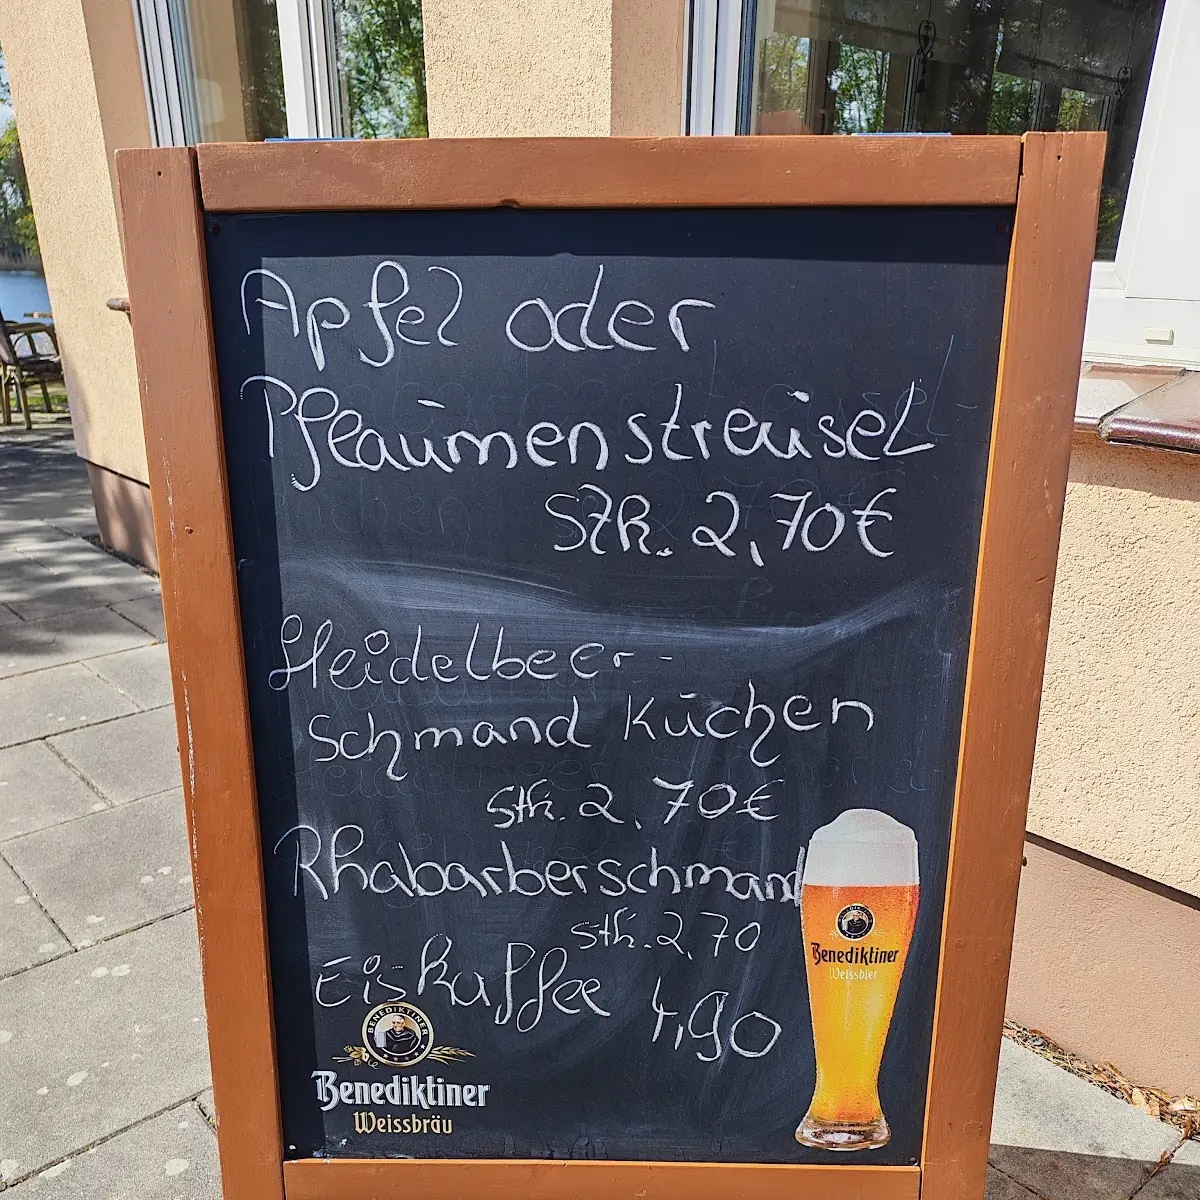 Apfel oder
Pflaumenstreusel
Stk. 2,70€
Heidelbeer-
Schmand Kuchen
Stk. 2,70€
Rhabarberschmand
Stk. 2,70
Eiskaffee 4,90
BENEDIKTINER
Benediktiner
Weissbräu
Benediktiner
Weissbier